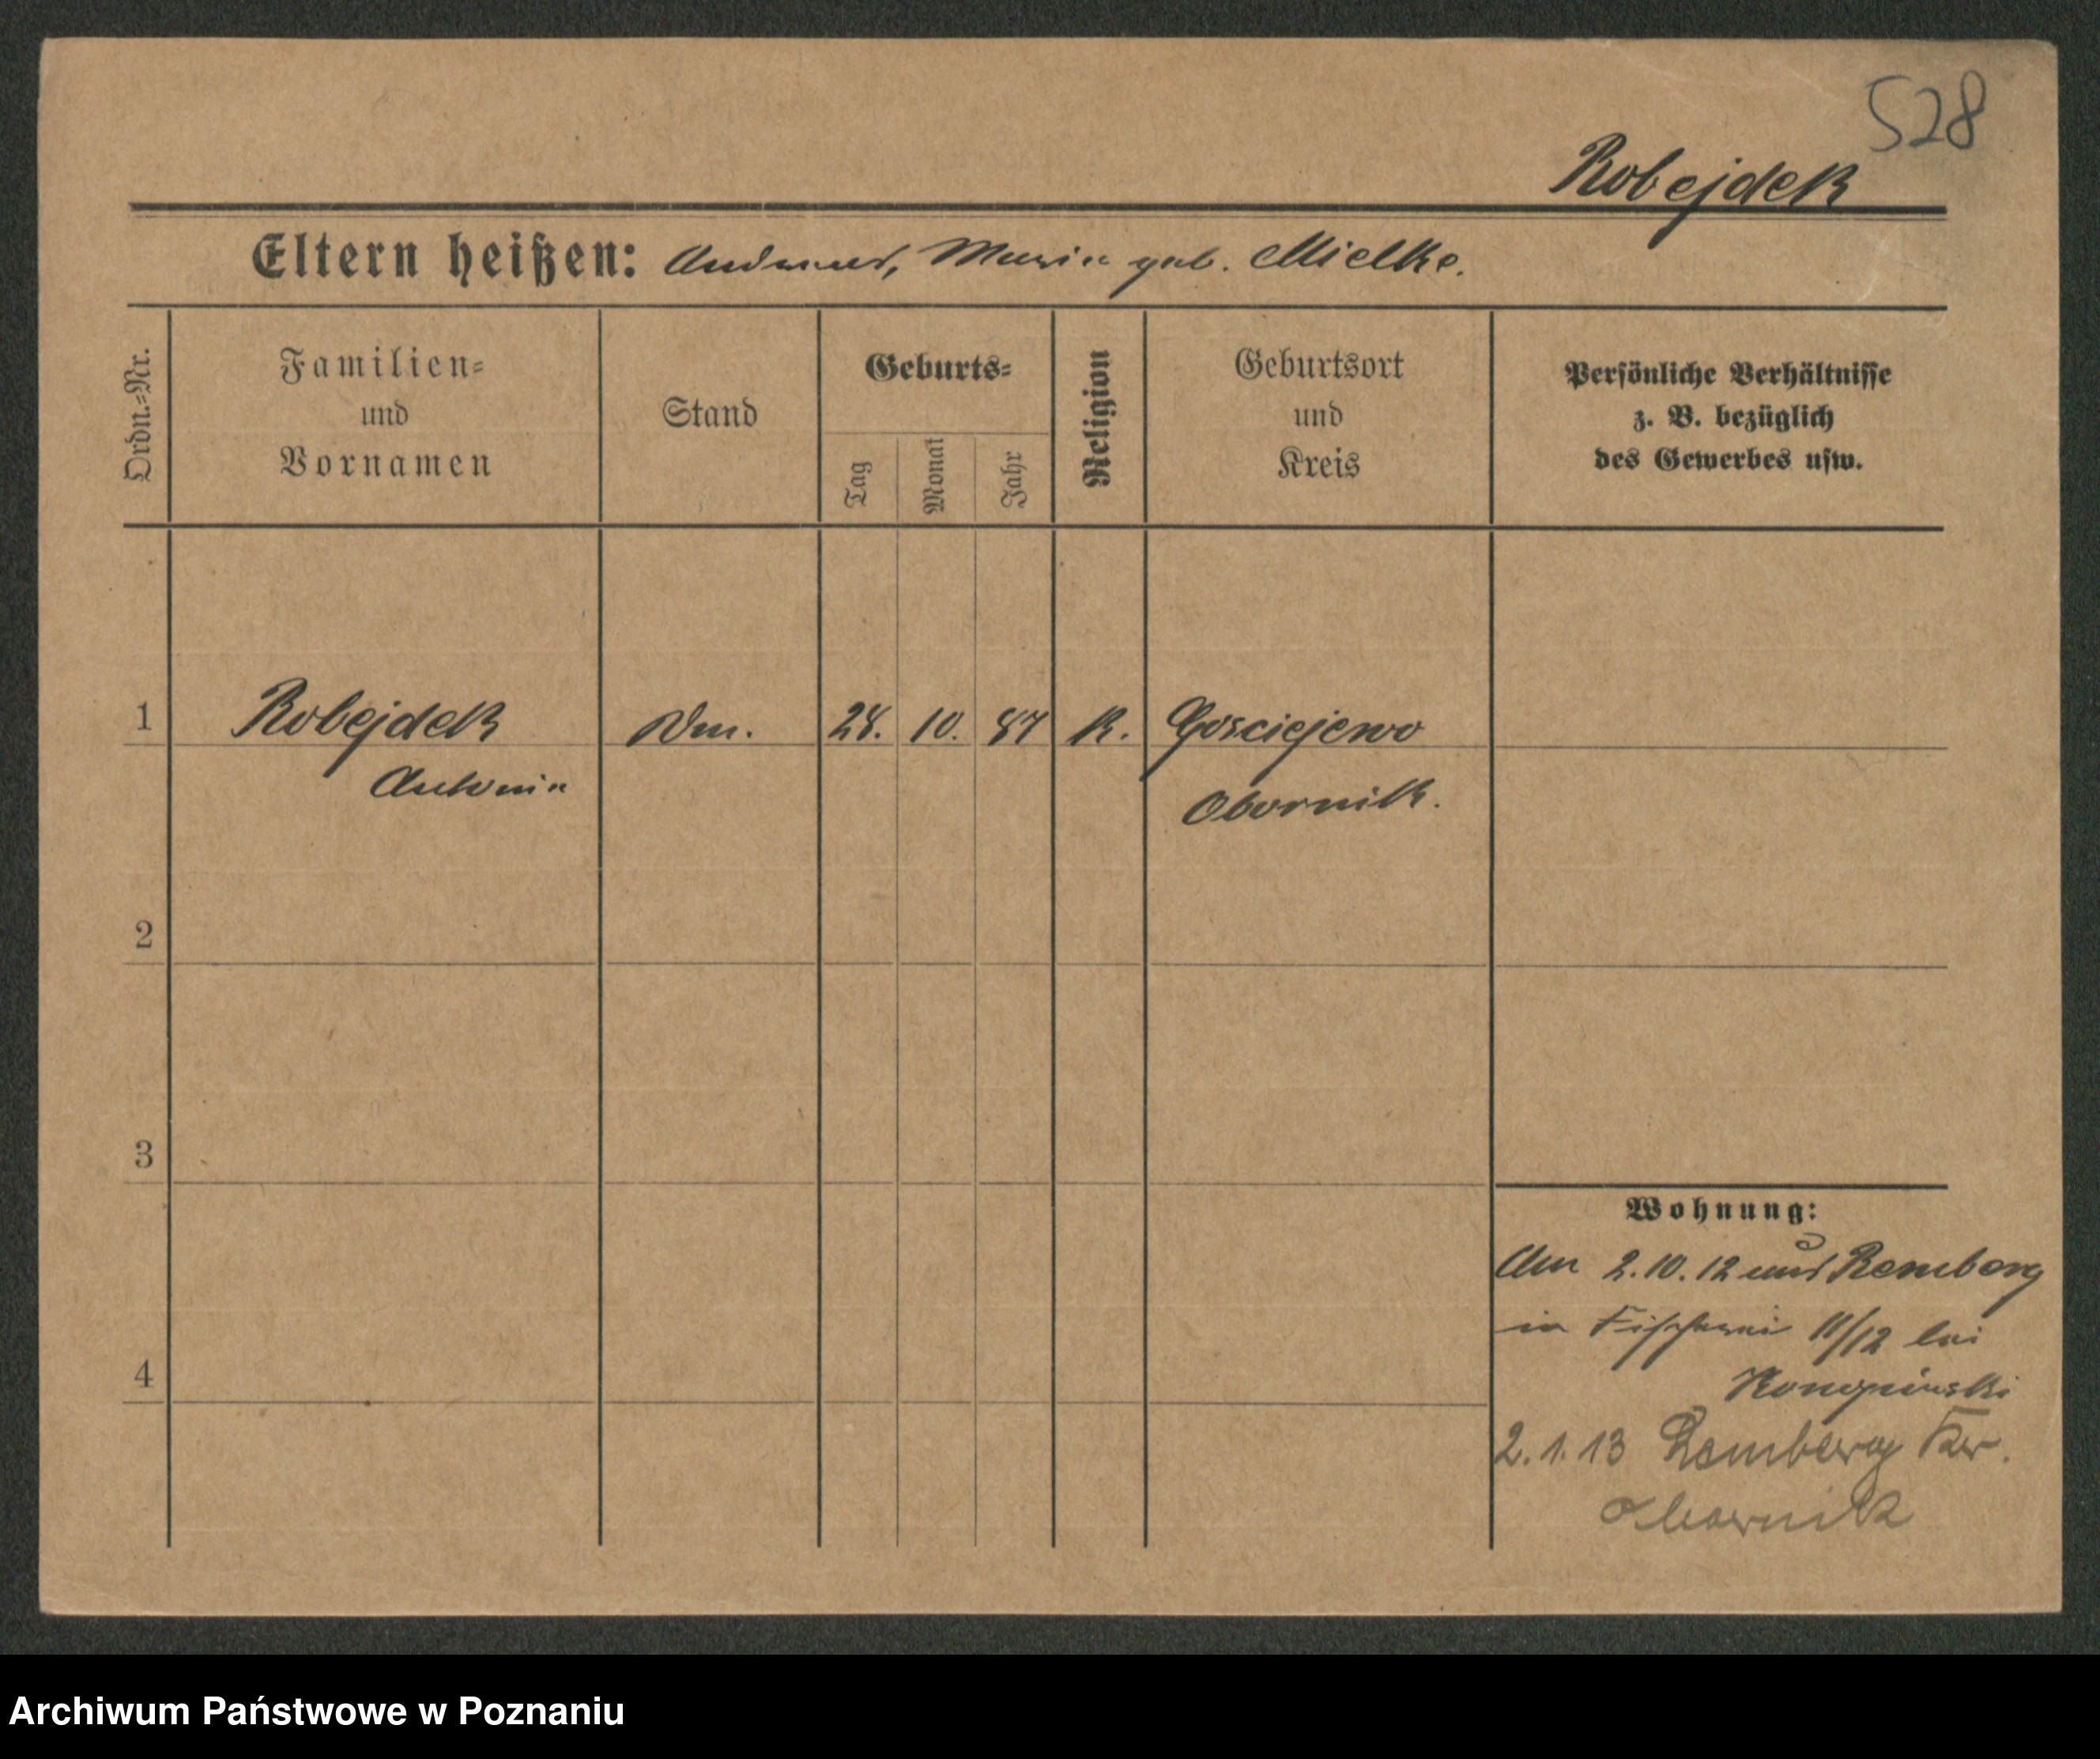 528
Robejdek
Eltern heißen: Andreas, Maria geb. Mielke.
Ordn.=Nr.
Familien=
und
Vornamen
Stand
Geburts=
Tag
Monat
Jahr
Religion
Geburtsort
und
Kreis
Persönliche Verhältnisse
z. B. bezüglich
des Gewerbes usw.
1 Robejdek 28. 10. 87 K. Gosciejewo
Antonia Obornik.
2
3
4
Wohnung:
Am 2.10.12 aus
in Fischerei 11/12 bei
2.1.13 Lemberg Kr.
Obornik
Archiwum Państwowe w Poznaniu